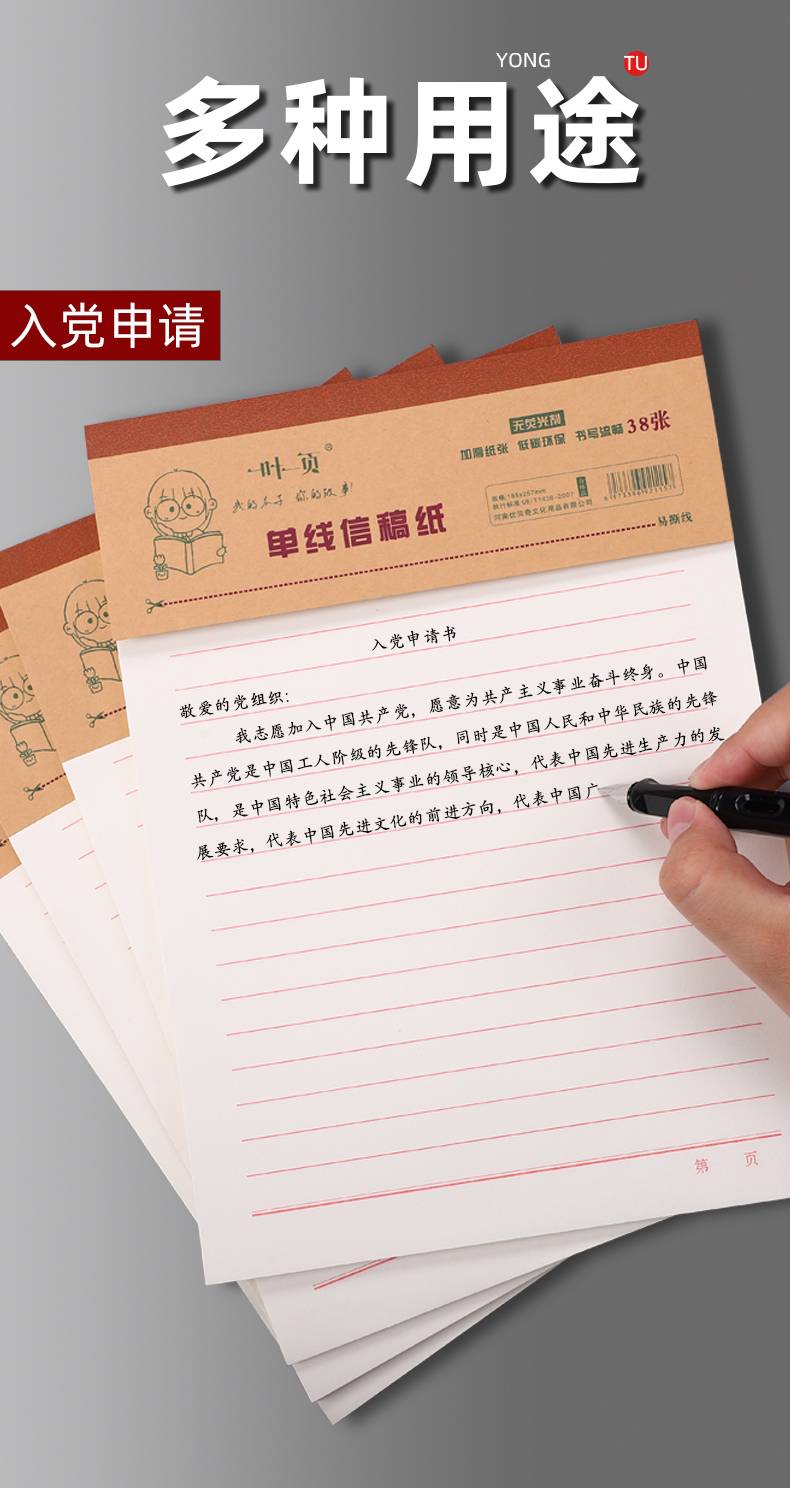 YONG TU
多种用途
入党申请
一叶一页®
我的本子 你的故事!
无荧光剂
加厚纸张 低碳环保 书写流畅 38张
单线信稿纸
规格:185x257mm
执行标准:GB/T1438-2007
河南优贝奇文化用品有限公司
合格品
易撕线
入党申请书
敬爱的党组织:
我志愿加入中国共产党，愿意为共产主义事业奋斗终身。中国
共产党是中国工人阶级的先锋队，同时是中国人民和中华民族的先锋
队，是中国特色社会主义事业的领导核心，代表中国先进生产力的发
展要求，代表中国先进文化的前进方向，代表中国广
第 页